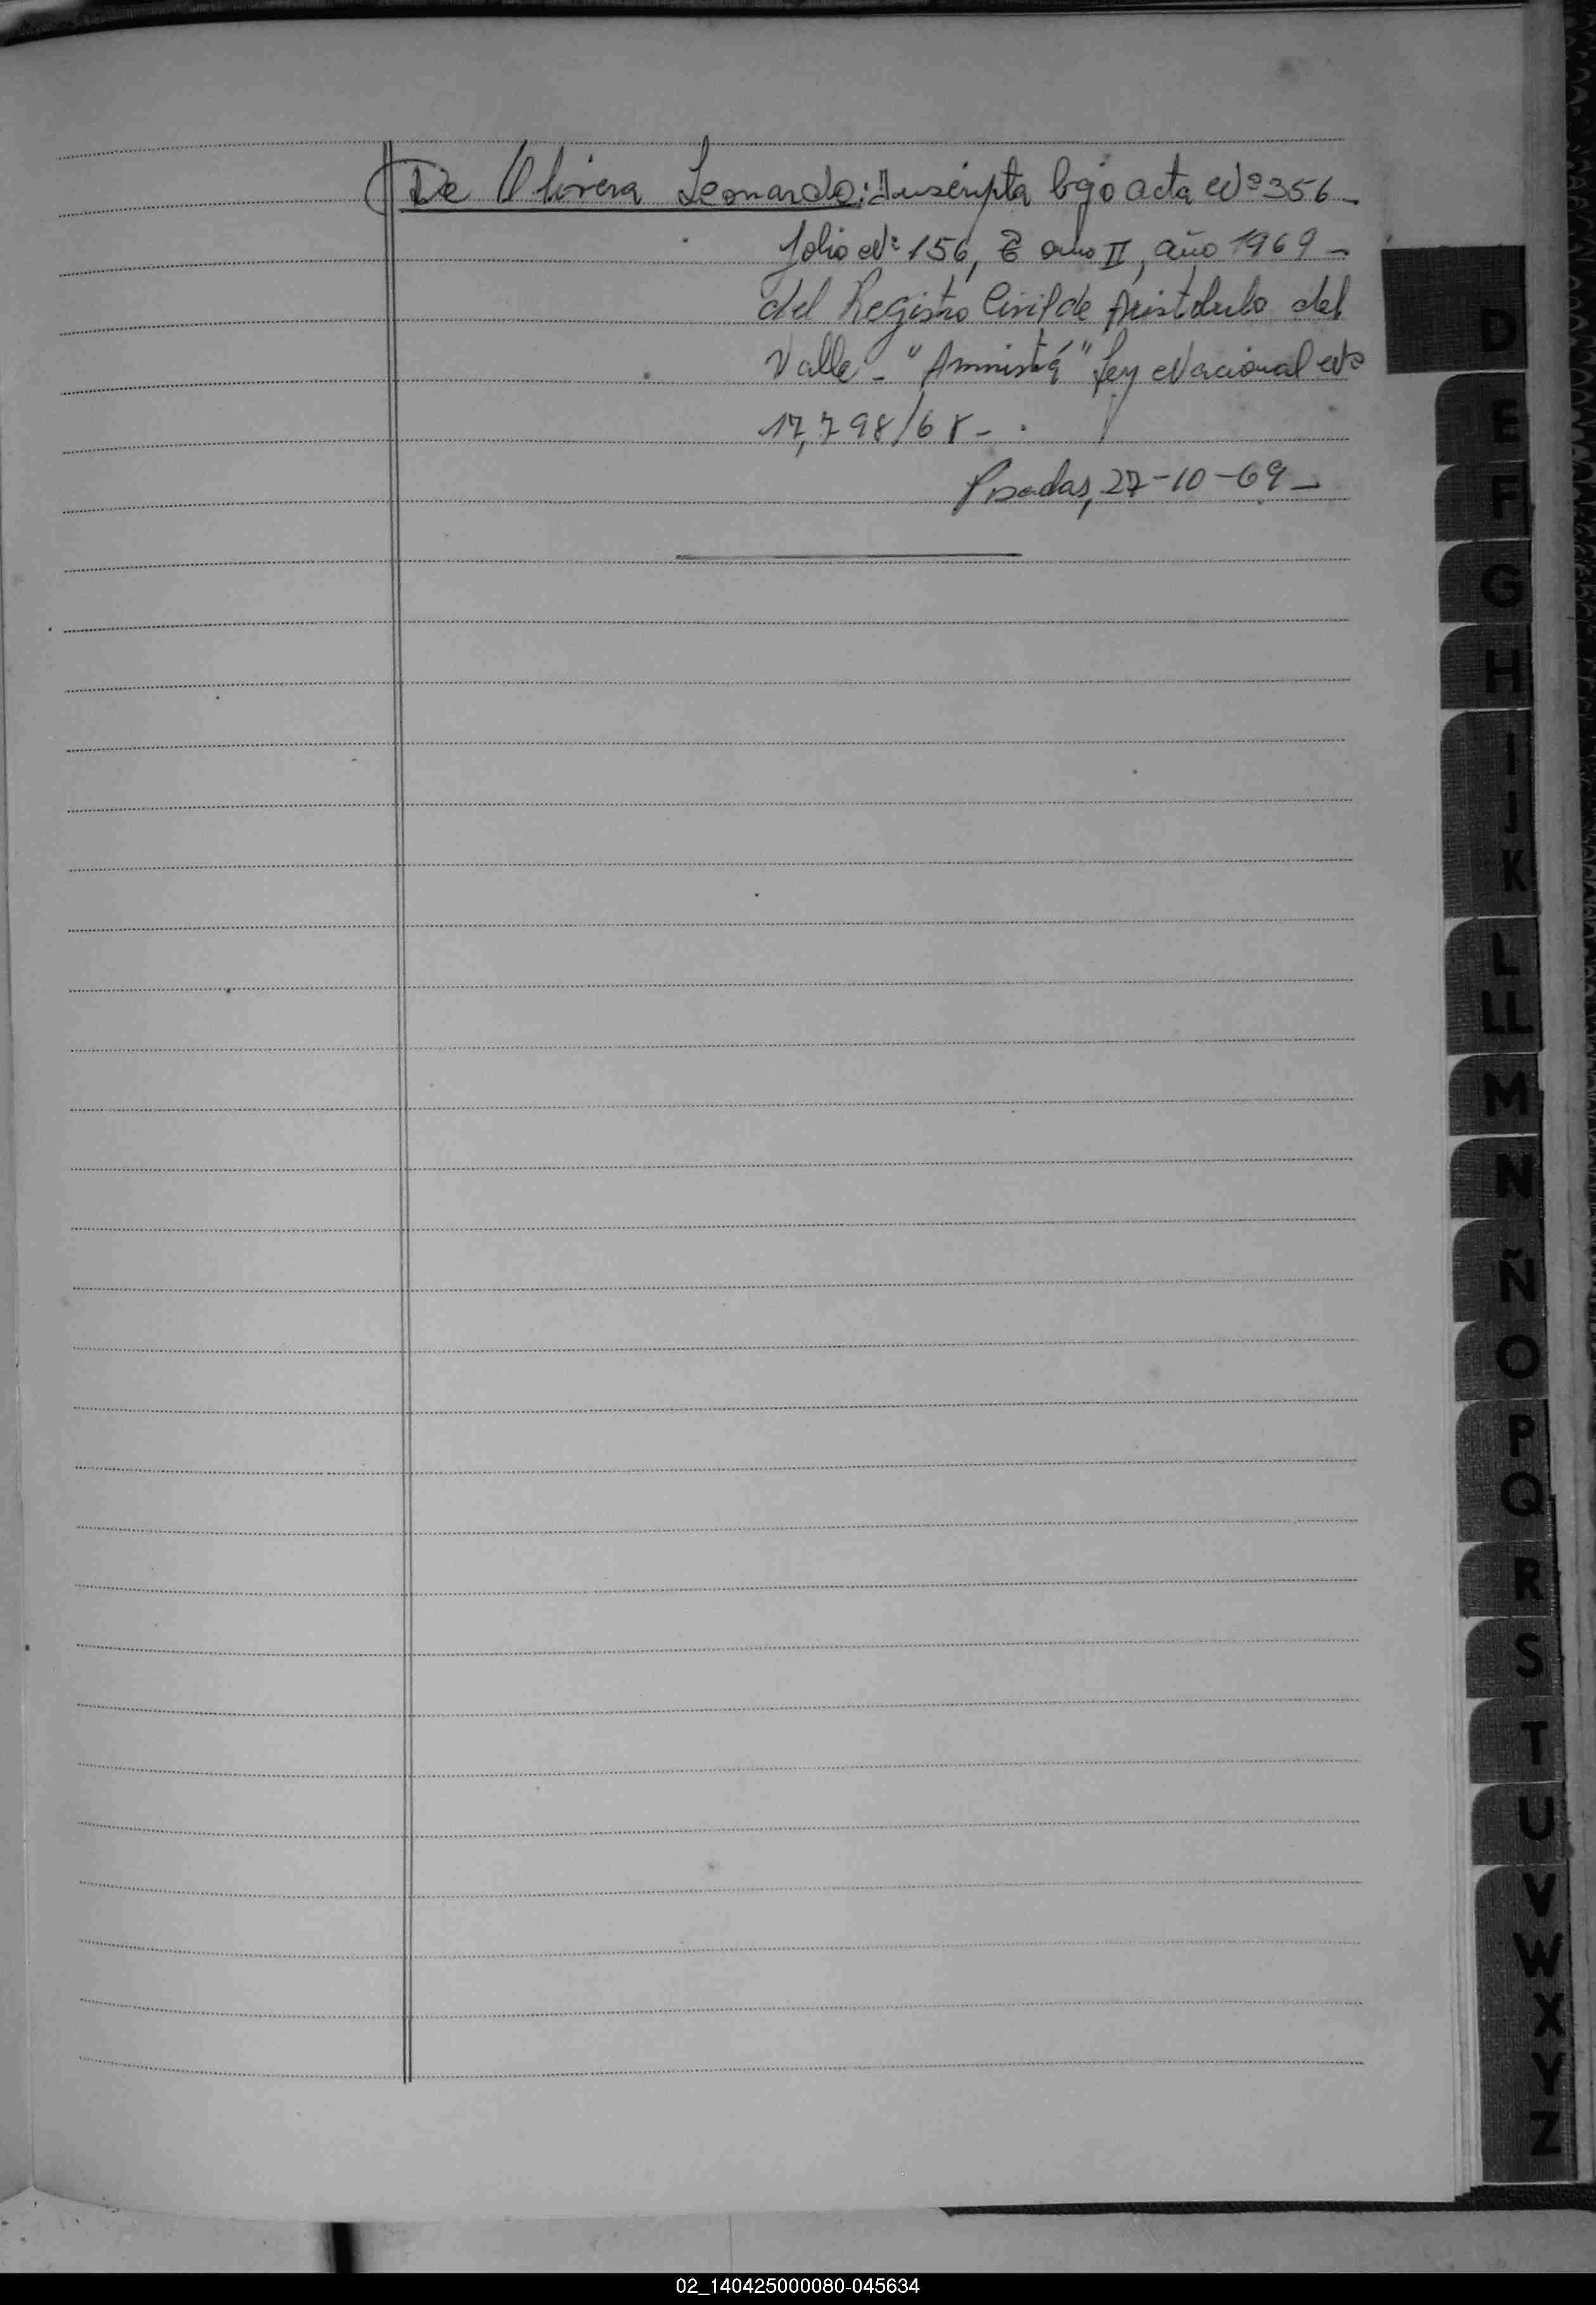 De Olivera Leonardo: Inscripta bajo acta Nº 356-
folio Nº 156, Tomo II, año 1969-
del Registro Civil de Aristobulo del
Valle- "Amnistia" Ley Nacional Nº
17,798/68-
Posadas, 27-10-69-
D
E
F
G
H
I
J
K
L
LL
M
N
Ñ
O
P
Q
R
S
T
U
V
W
X
Y
Z
02_140425000080-045634